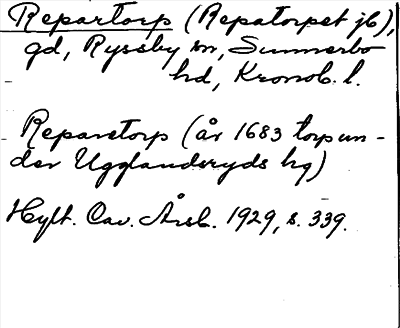 Repartorp (Repatorpet jb),
gd, Ryssby sn, Sunnerbo
hd, Kronob. l.
Reparetorp (år 1683 torp un-
der Ugglansryds hg)
Hylt. Cav. Årsb. 1929, s. 339.